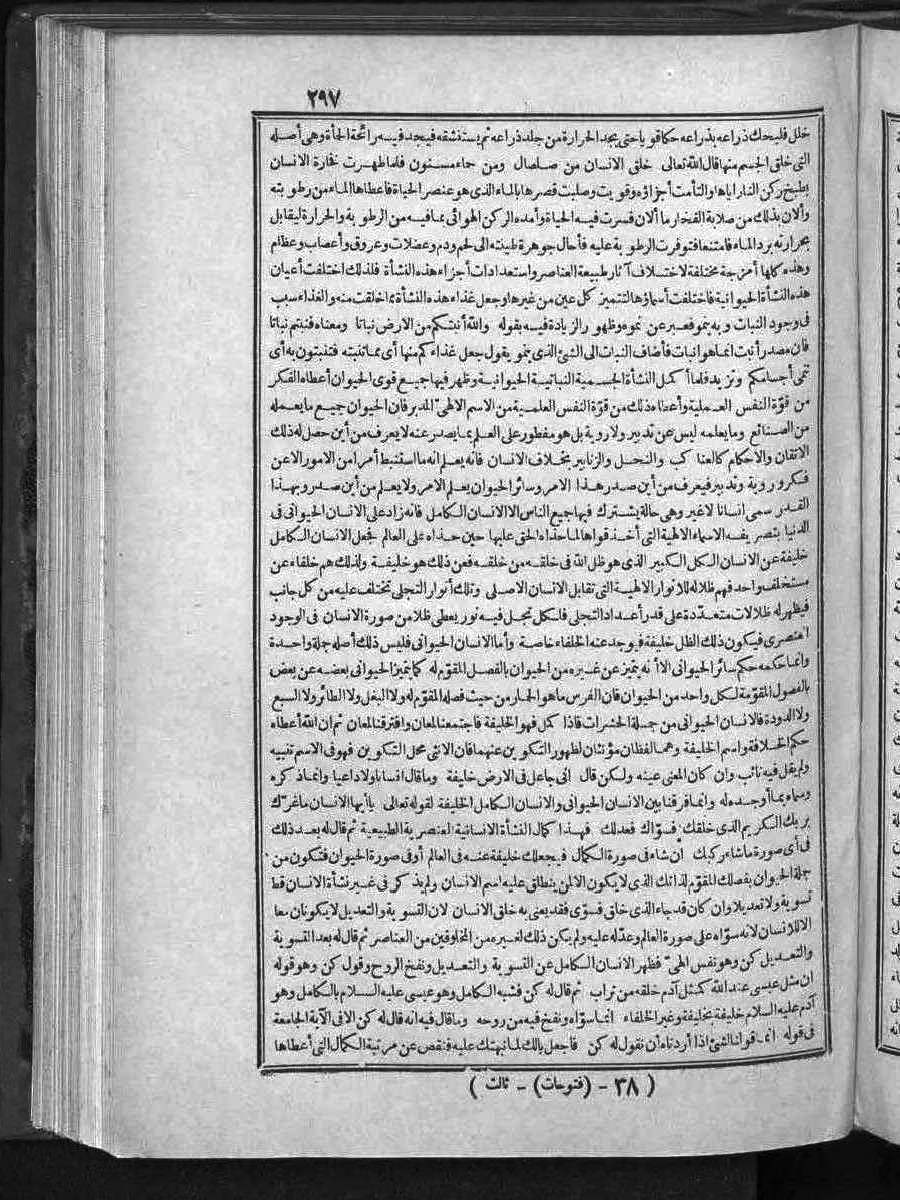 ٢٩٧
خلل فليحك ذراعه بذراعه حكا قويا حتى يجد الحرارة من جلد ذراعه ثم يستنشقه فيجد فيه رائحة الحمأة وهى أصله
التى خلق الجسم منها قال الله تعالى خلق الانسان من صلصال ومن حماء مسنون فلما ظهرت نخارة الانسان
بطبخ ركن النار اياها والتأمت أجزاؤه وقويت وصلبت قصرها بالماء الذى هو عنصر الحياة فأعطاها الماء من رطوبته
وألان بذلك من صلابة الفخار ما ألان فسرت فيه الحياة وأمده الركن الهوائى بما فيه من الرطوبة والحرارة ليقابل
بحرارته برد الماء فامتنعا فتوفرت الرطوبة عليه فأحال جوهرة طينته الى لحم ودم وعضلات وعروق وأعصاب وعظام
وهذه كلها أمزجة مختلفة لاختلاف آثار طبيعة العناصر واستعدادات أجزاء هذه النشأة فلذلك اختلفت أعيان
هذه النشأة الحيوانية فاختلفت أسماؤها لتتميز كل عين من غيرها وجعل غذاء هذه النشأة مما خلقت منه والغذاء سبب
فى وجود النبات وبه ينمو فعبر عن نموه وظهور الزيادة فيه بقوله والله أنبتكم من الارض نباتا ومعناه فنبتم نباتا
فان مصدر أنبت انما هو انبات فأضاف النبات الى الشئ الذى ينمو يقول جعل غذاءكم منها أى مما تنبته فتنبتون به أى
تنمى أجسامكم وتزيد فلما أكمل النشأة الجسمية النباتية الحيوانية وظهر فيها جميع قوى الحيوان أعطاه الفكر
من قوّة النفس العملية وأعطاه ذلك من قوّة النفس العلمية من الاسم الالهىّ المدبر فان الحيوان جميع ما يعمله
من الصنائع وما يعلمه ليس عن تدبير ولا روية بل هو مفطور على العلم بما يصدر عنه لا يعرف من أين حصل له ذلك
الاتقان والاحكام كالعناكب والنحل والزنابير بخلاف الانسان فانه يعلم انه ما استنبط أمرا من الامور الا عن
فكر وروية وتدبير فيعرف من أين صدر هذا الامر وسائر الحيوان يعلم الامر ولا يعلم من أين صدر وبهذا
القدر سمى انسانا لا غير وهى حالة يشترك فيها جميع الناس الا الانسان الكامل فانه زاد على الانسان الحيوانى فى
الدنيا بتصريفه الاسماء الالهية التى أخذ قواها لما حذاه الحق عليها حين حذاه على العالم فجعل الانسان الكامل
خليفة عن الانسان الكل الكبير الذى هو ظل الله فى خلقه من خلقه فعن ذلك هو خليفة ولذلك هم خلفاء عن
مستخلف واحد فهم ظلاله للانوار الالهية التى تقابل الانسان الاصلى وتلك أنوار التجلى تختلف عليه من كل جانب
فيظهر له ظلالات متعدّدة على قدر أعداد التجلى فلكل تجل فيه نور يعطى ظلا من صورة الانسان فى الوجود
العنصرى فيكون ذلك الظل خليفة فيوجد عنه الخلفاء خاصة وأما الانسان الحيوانى فليس ذلك أصله جملة واحدة
وانما حكمه حكم سائر الحيوانى الا أنه يتميز عن غيره من الحيوان بالفصل المقوّم له كما يتميز الحيوانى بعضه عن بعض
بالفصول المقوّمة لكل واحد من الحيوان فان الفرس ما هو الحمار من حيث فصله المقوّم له ولا البغل ولا الطائر ولا السبع
ولا الدودة فالانسان الحيوانى من جملة الحشرات فاذا كمل فهو الخليفة فاجتمعا لمعان وافترقا لمعان ثم ان الله أعطاه
حكم الخلافة واسم الخليفة وهما لفظان مؤنثان لظهور التكوين عنهما فان الانثى محل التكوين فهو فى الاسم تنبيه
ولم يقل فيه نائب وان كان المعنى عينه ولكن قال انى جاعل فى الارض خليفة وما قال انسانا ولا داعيا وانما ذكره
وسماه بما أوجده له وانما فرقنا بين الانسان الحيوانى والانسان الكامل الخليفة لقوله تعالى يا أيها الانسان ما غرّك
بربك الكريم الذى خلقك فسوّاك فعدلك فهذا كمال النشأة الانسانية العنصرية الطبيعية ثم قال له بعد ذلك
فى أى صورة ما شاء ركبك ان شاء فى صورة الكمال فيجعلك خليفة عنه فى العالم أو فى صورة الحيوان فتكون من
جملة الحيوان بفصلك المقوّم لذاتك الذى لا يكون الا لمن ينطلق عليه اسم الانسان ولم يذكر فى غير نشأة الانسان قط
تسوية ولا تعديلا وان كان قد جاء الذى خلق فسوّى فقد يعنى به خلق الانسان لان التسوية والتعديل لا يكونان معا
الا للانسان لانه سوّاه على صورة العالم وعدّله عليه ولم يكن ذلك لغيره من المخلوقين من العناصر ثم قال له بعد التسوية
والتعديل كن وهو نفس الهىّ فظهر الانسان الكامل عن التسوية والتعديل ونفخ الروح وقول كن وهو قوله
ان مثل عيسى عند الله كمثل آدم خلقه من تراب ثم قال له كن فشبه الكامل وهو عيسى عليه السلام بالكامل وهو
آدم عليه السلام خليفة بخليفة وغير الخلفاء انما سوّاه ونفخ فيه من روحه وما قال فيه انه قال له كن الا فى الآية الجامعة
فى قوله انما قولنا لشئ اذا أردناه أن نقول له كن فاجعل بالك لما نبهتك عليه فنقص عن مرتبة الكمال التى أعطاها
( ٣٨ - (فتوحات) - ثالث )